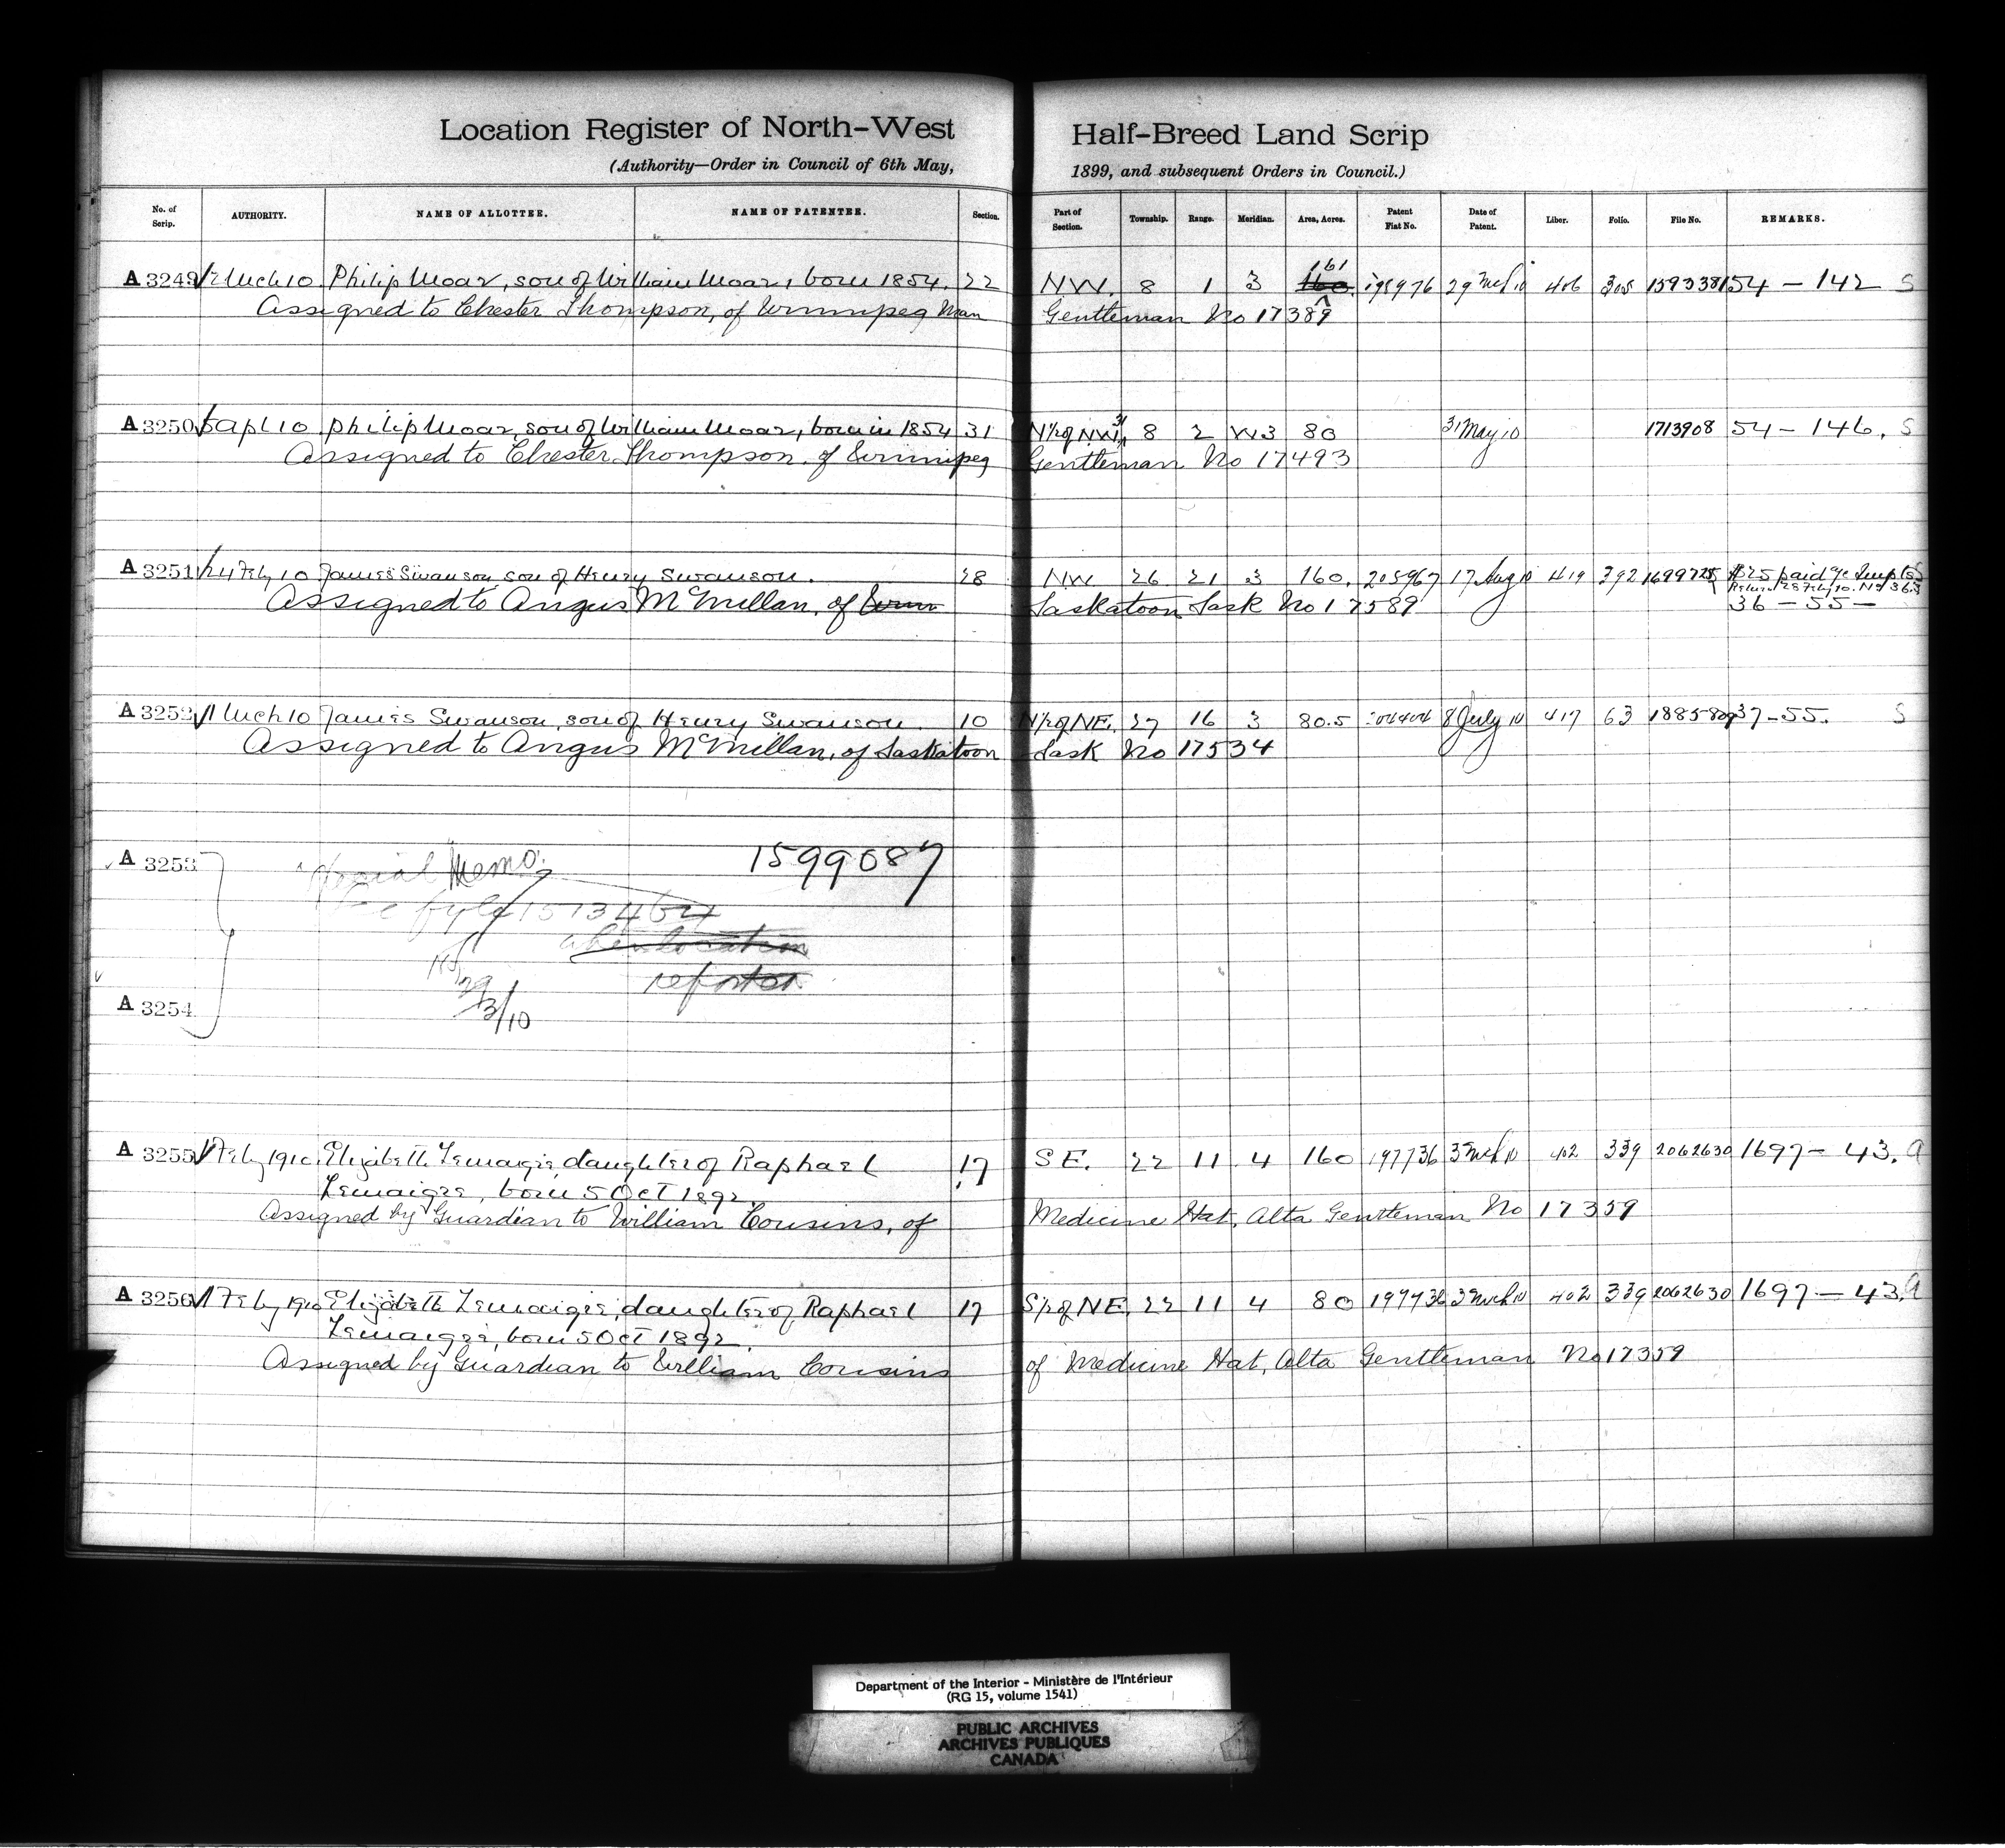 Location Register of North-West Half-Breed Land Scrip
(Authority—Order in Council of 6th May, 1899, and subsequent Orders in Council.)
No. of Scrip. AUTHORITY. NAME OF ALLOTTEE. NAME OF PATENTEE. Section. Part of Section. Township. Range. Meridian. Area, Acres. Patent Fiat No. Date of Patent. Liber. Folio. File No. REMARKS.
A 3249 Mch 10 Philip Moar, son of William Moar, born 1854. 22 NW. 8 1 3 161 160. 29 Mch 10 406 305 54 - 142 S
Assigned to Chester Thompson, of Winnipeg Man Gentleman No 17389
A 3250 Apl 10 Philip Moar, son of William Moar, born in 1854 31 N½ of NW¼ 8 2 W3 80 31 May 10 1713908 54 - 146. S
Assigned to Chester Thompson of Winnipeg Gentleman No 17493
A 3251 24 Feby 10 James Swanson son of Henry Swanson. 28 NW 26 21 3 160. 205967 17 Aug 10 419 392 $25 paid
Assigned to Angus McMillan, of Saskatoon Sask No 17589 36 - 55 -
A 3252 1 Mch 10 James Swanson, son of Henry Swanson. 10 N½ of NE. 27 16 3 80.5 204404 8 July 10 417 63 37 - 55. S
Assigned to Angus McMillan, of Saskatoon Sask No 17534
A 3253 Special Memo. 1599087
when location
reported
3/10
A 3254
A 3255 Feby 1910. Elizabeth Lemaigre, daughter of Raphael 17 S E. 22 11 4 160 197736 3 Mch 10 402 339 2062630 1697 - 43. a
Lemaigre, born 5 Oct 1892.
Assigned by Guardian to William Cousins, of Medicine Hat, Alta Gentleman No 17359
A 3256 1 Feby 1910 Elizabeth Lemaigre, daughter of Raphael 17 S½ of NE. 22 11 4 80 197736 3 Mch 10 402 339 2062630 1697 - 43. a
Lemaigre, born 5 Oct 1892.
Assigned by Guardian to William Cousins of Medicine Hat, Alta Gentleman No 17359
Department of the Interior - Ministère de l'Intérieur
(RG 15, volume 1541)
PUBLIC ARCHIVES
ARCHIVES PUBLIQUES
CANADA